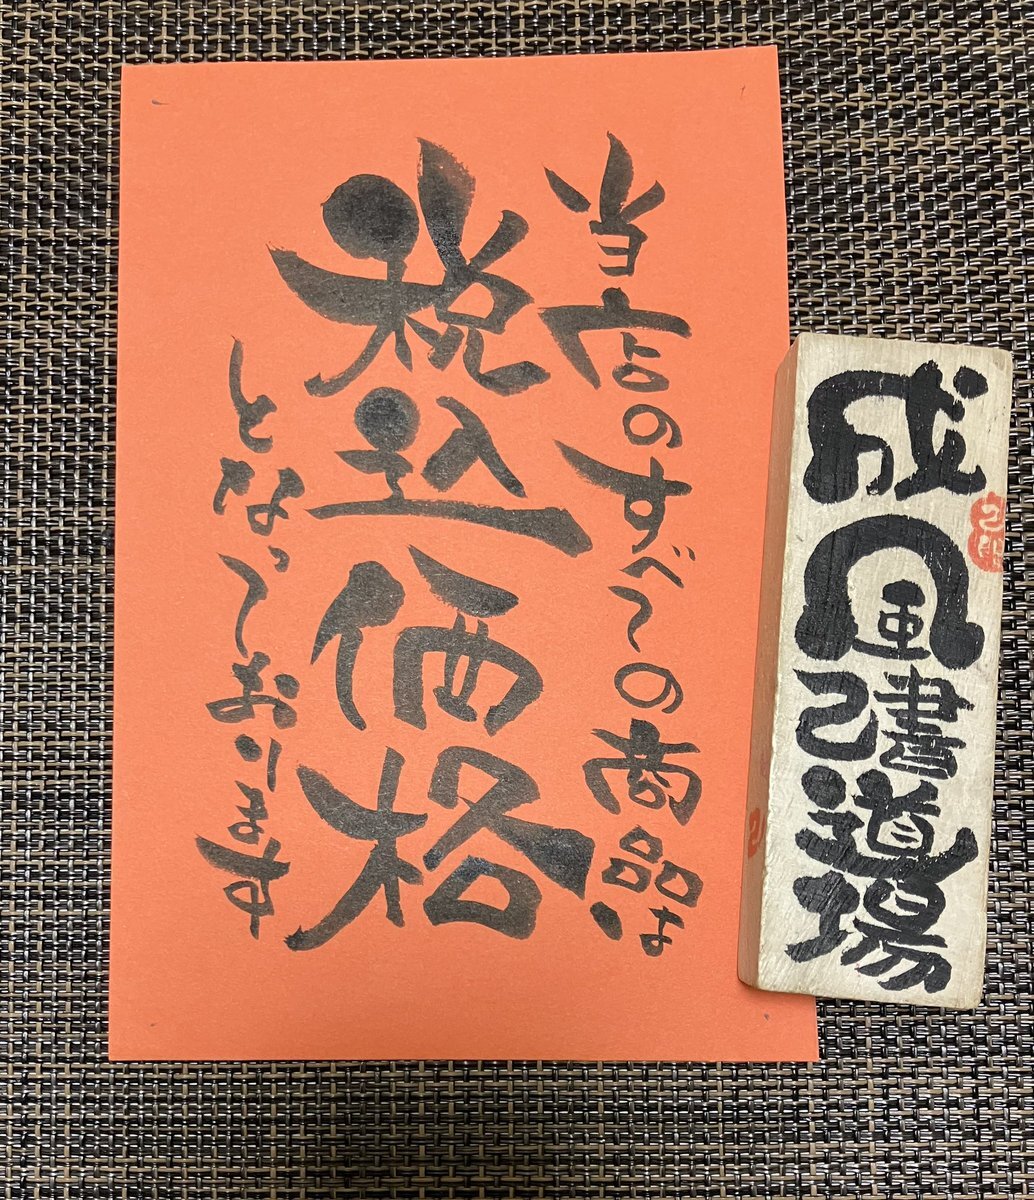 当店のすべての商品は
税込価格
となっております
成風
己書道場